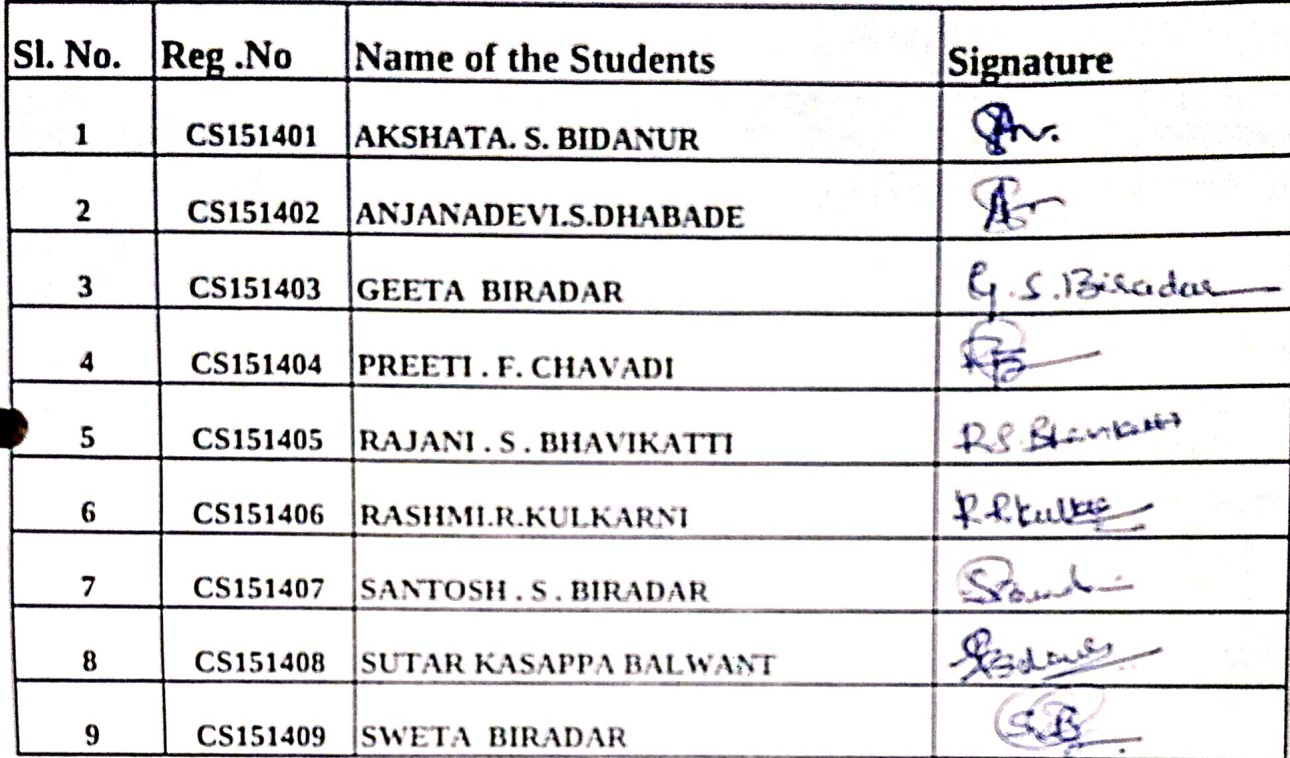 Sl. No. Reg .No Name of the Students Signature
1 CS151401 AKSHATA. S. BIDANUR
2 CS151402 ANJANADEVI.S.DHABADE
3 CS151403 GEETA BIRADAR G.S.Biradar
4 CS151404 PREETI . F. CHAVADI
5 CS151405 RAJANI . S . BHAVIKATTI R.S.Bhavikatti
6 CS151406 RASHMI.R.KULKARNI
7 CS151407 SANTOSH . S . BIRADAR
8 CS151408 SUTAR KASAPPA BALWANT
9 CS151409 SWETA BIRADAR S.B